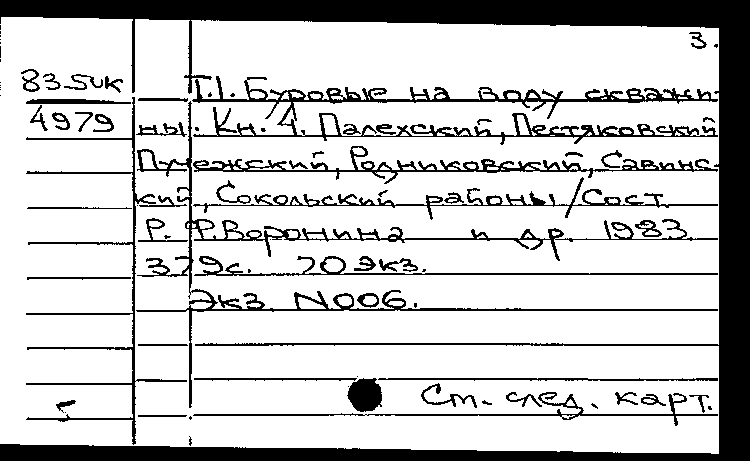 3.
83-5ЦК Т.1. Буровые на воду скважи-
4979 ны. Кн. 4. Палехский, Пестяковский
Пучежский, Родниковский, Савинс-
кий, Сокольский районы/Сост.
Р. Ф. Воронина и др. 1983.
379с. 70 экз.
Экз N006.
5 Ст. след. карт.